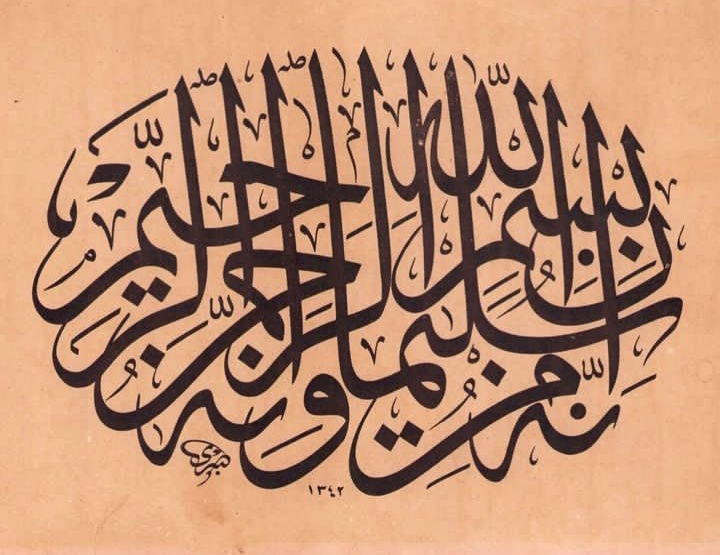 إنه من سليمان وإنه بسم الله الرحمن الرحيم
١٣٤٢